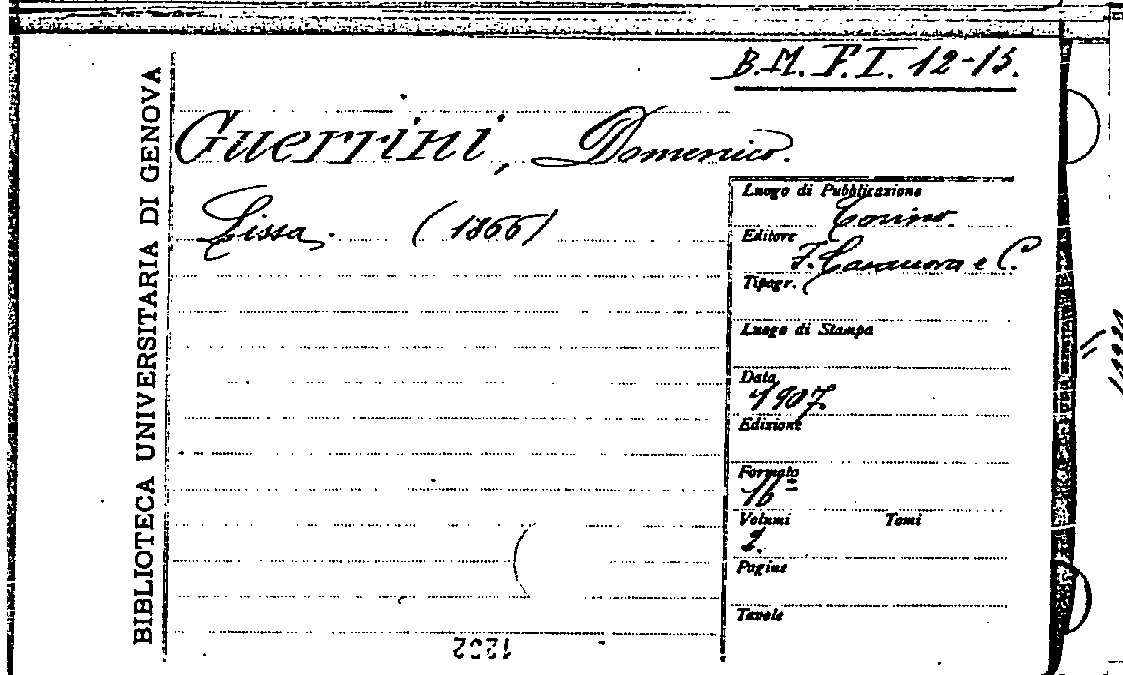 B.M. F.I. 12-13.
BIBLIOTECA UNIVERSITARIA DI GENOVA
Guerrini, Domenico.
Lissa. (1866)
Luogo di Pubblicazione
Torino.
Editore
F. Casanova e C.
Tipogr.
Luogo di Stampa
Data
1907
Edizione
Formato
16°
Volumi Tomi
2.
Pagine
Tavole